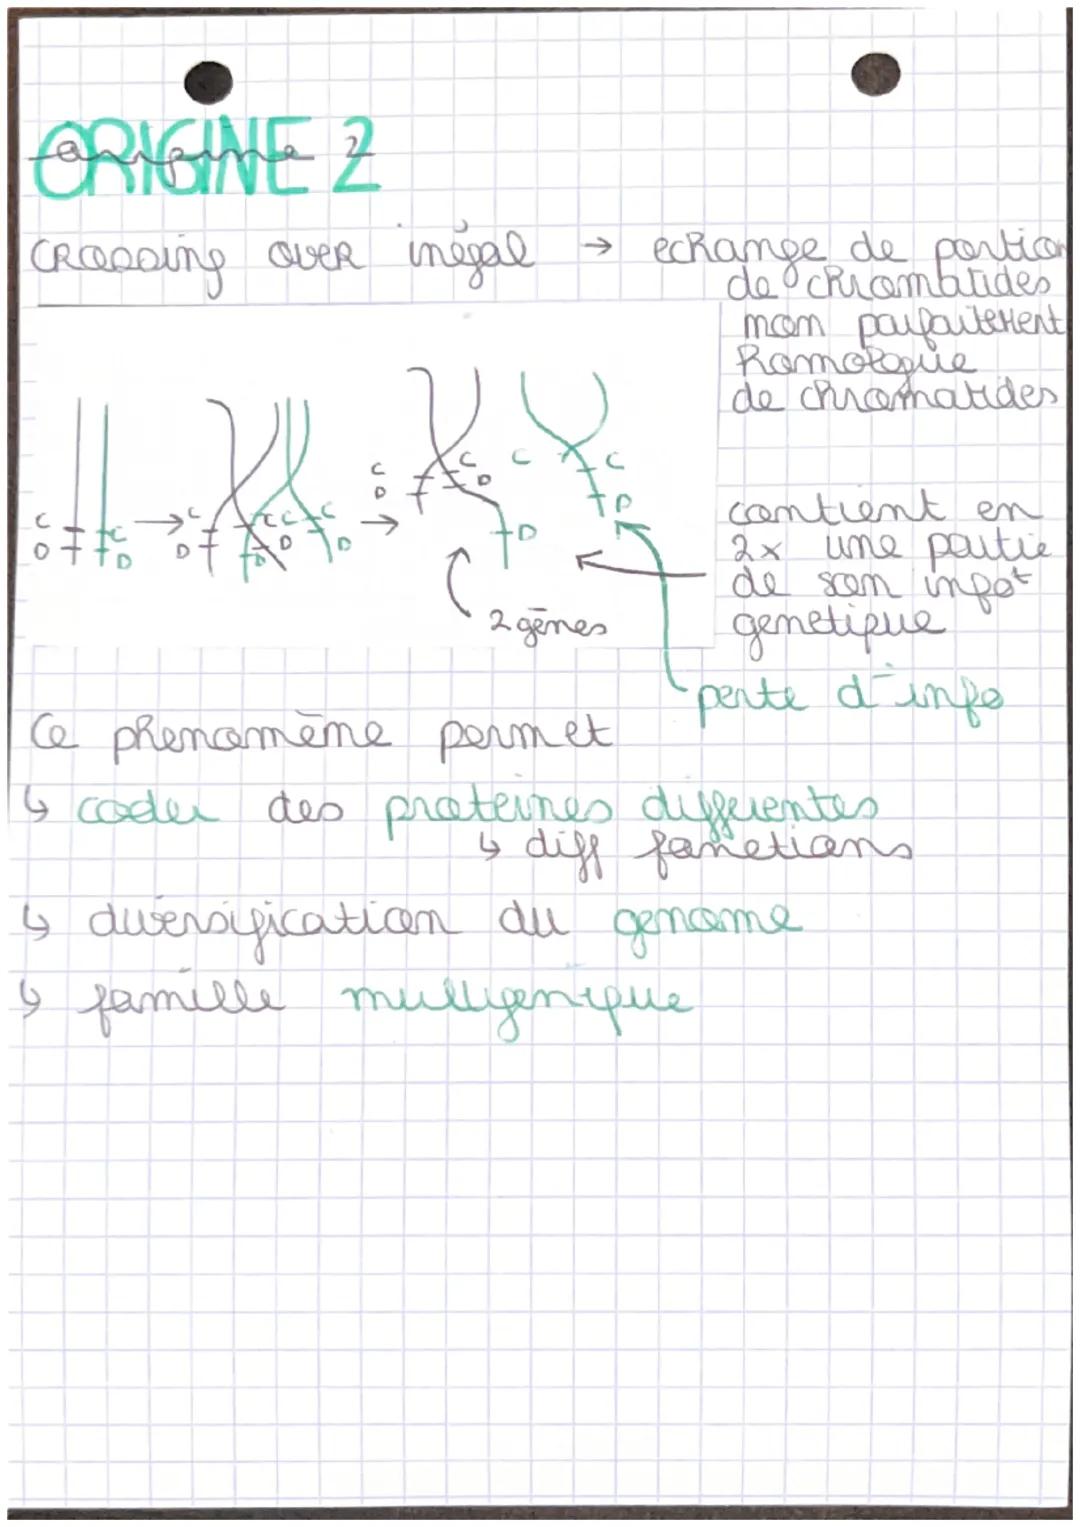 ORIGINE 2
origine
crossing over inégal → echange de portion
de chromatides
non parfaitement
homologue
de chromatides
C
D
C
D
→
C
D
C
D
C
D
C
D
→
C
D
C
D
D
C
C
D
2 gènes
contient en
2x une partie
de son info t
genetique
perte d'info
Ce phenomème permet
↳ coder des proteines differentes
↳ diff fonctions
↳ diversification du genome
↳ famille multigenique